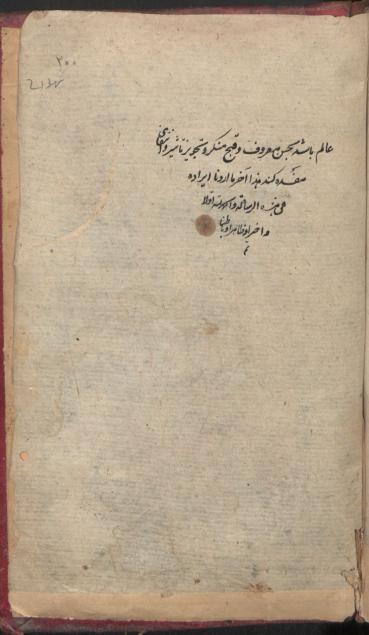 ۲۰۰
عالم باشد بحسن معروف و قبح منکر و تجویز تأثیر و انتفای
مفسده کند هذا آخر ما اردنا ایراده
فی هذه الرسالة والحمد لله اولا
و اخرا و ظاهرا و باطنا
تم